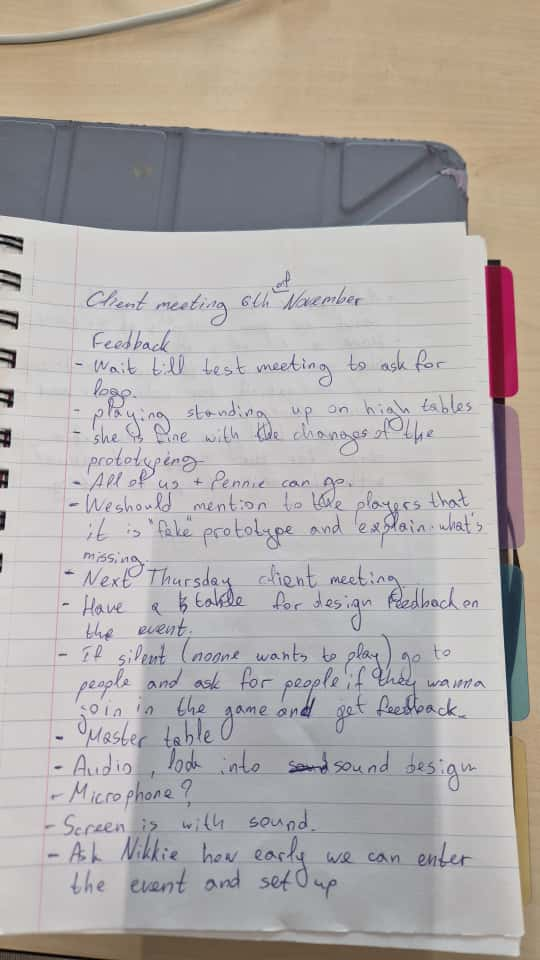 Client meeting 6th of November
Feedback
- Wait till test meeting to ask for
logo.
- playing standing up on high tables
- she is fine with the changes of the
prototyping
- All of us + Pennie can go.
- We should mention to the players that
it is "fake" prototype and explain what's
missing.
- Next Thursday client meeting.
- Have a table for design feedback on
the event.
- If silent (nonne wants to play) go to
people and ask for people if they wanna
join in the game and get feedback.
- Master table
- Audio, look into sound design
- Microphone?
- Screen is with sound.
- Ask Nikkie how early we can enter
the event and set up